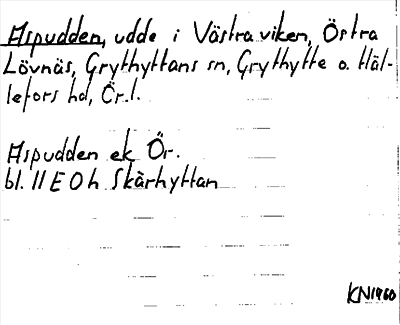 Aspudden, udde i Västra viken, Östra
Lövnäs, Grythyttans sn, Grythytte o. Häl-
lefors hd, Ör.l.
Aspudden ek Ör.
bl. 11 E 0 h Skärhyttan
KN1960